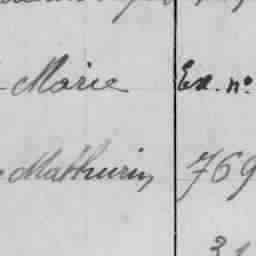 Marie Ex. no
Mathurin, 769